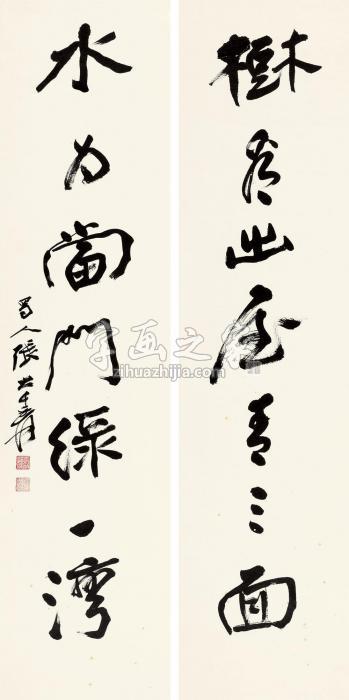 樹出屋青三面
水為當門綠一灣
蜀人張大千爰
字画之家
zihuazhijia.com